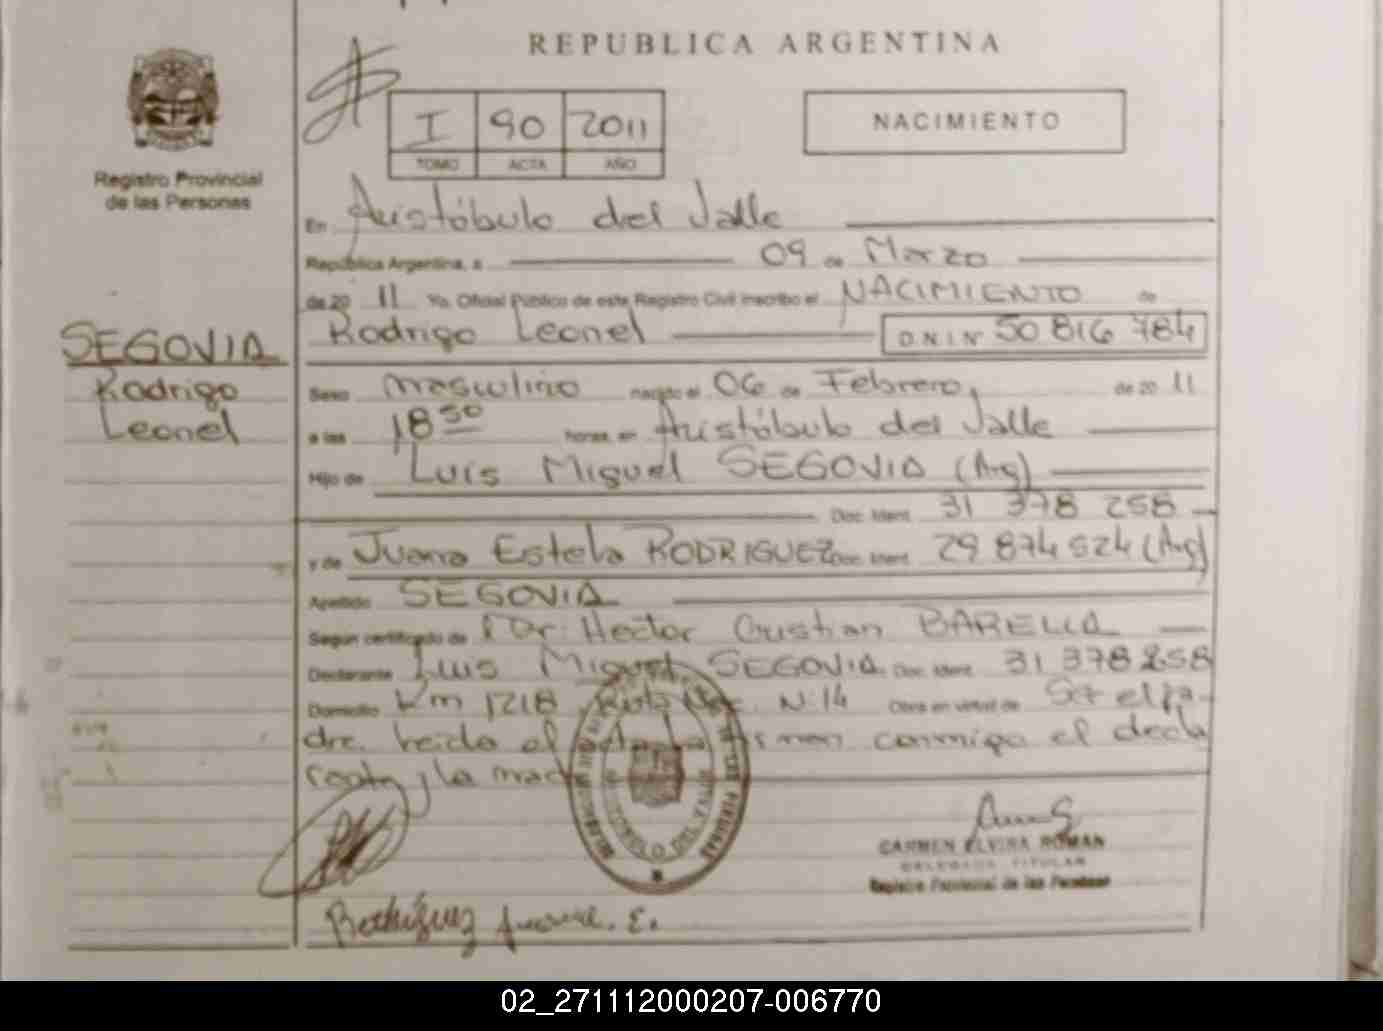 REPUBLICA ARGENTINA
I 90 2011
TOMO ACTA AÑO
NACIMIENTO
Registro Provincial
de las Personas
En Aristóbulo del Valle
República Argentina, a 09 de Marzo
de 20 11 Yo, Oficial Público de este Registro Civil inscribo el NACIMIENTO de
Rodrigo Leonel D N I N° 50 816 784
SEGOVIA
Rodrigo
Leonel
Sexo masculino nacido el 06 de Febrero, de 20 11
a las 18 50 horas en Aristóbulo del Valle
Hijo de Luis Miguel SEGOVIA (Arg)
Doc. Ident. 31 378 258
y de Juana Estela RODRIGUEZ Doc. Ident. 29 874 524 (Arg)
Apellido SEGOVIA
Según certificado de Dr. Hector Cristian BARELLA
Declarante Luis Miguel SEGOVIA Doc. Ident. 31 378 258
Domicilio Km 1218 Ruta Nac. N° 14 Obra en virtud de Ser el pa-
dre. Leido el acta firman conmigo el decla
rante y la madre
CARMEN ELVIRA ROMAN
DELEGADA TITULAR
Registro Provincial de las Personas
Rodríguez Juana. E.
02_271112000207-006770